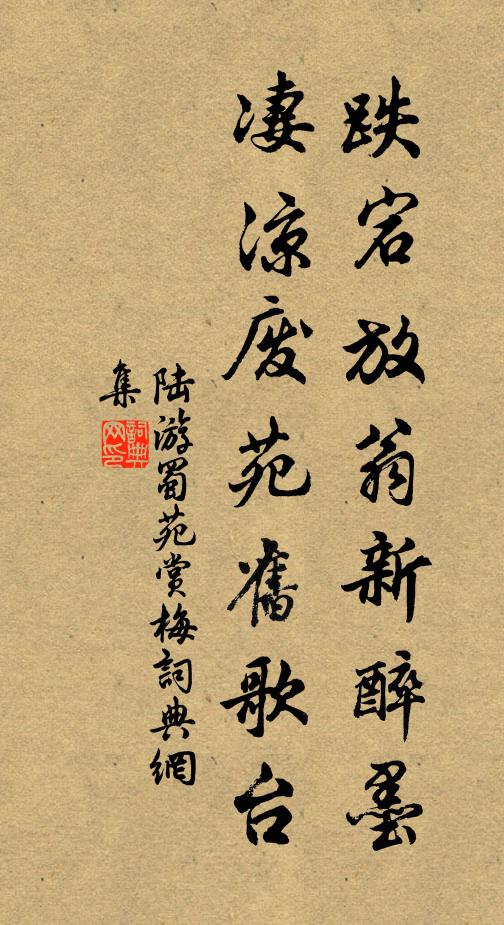 跌宕放翁新醉墨
凄凉废苑舊歌台
陆游蜀苑赏梅詞典網
集
詞典
网印